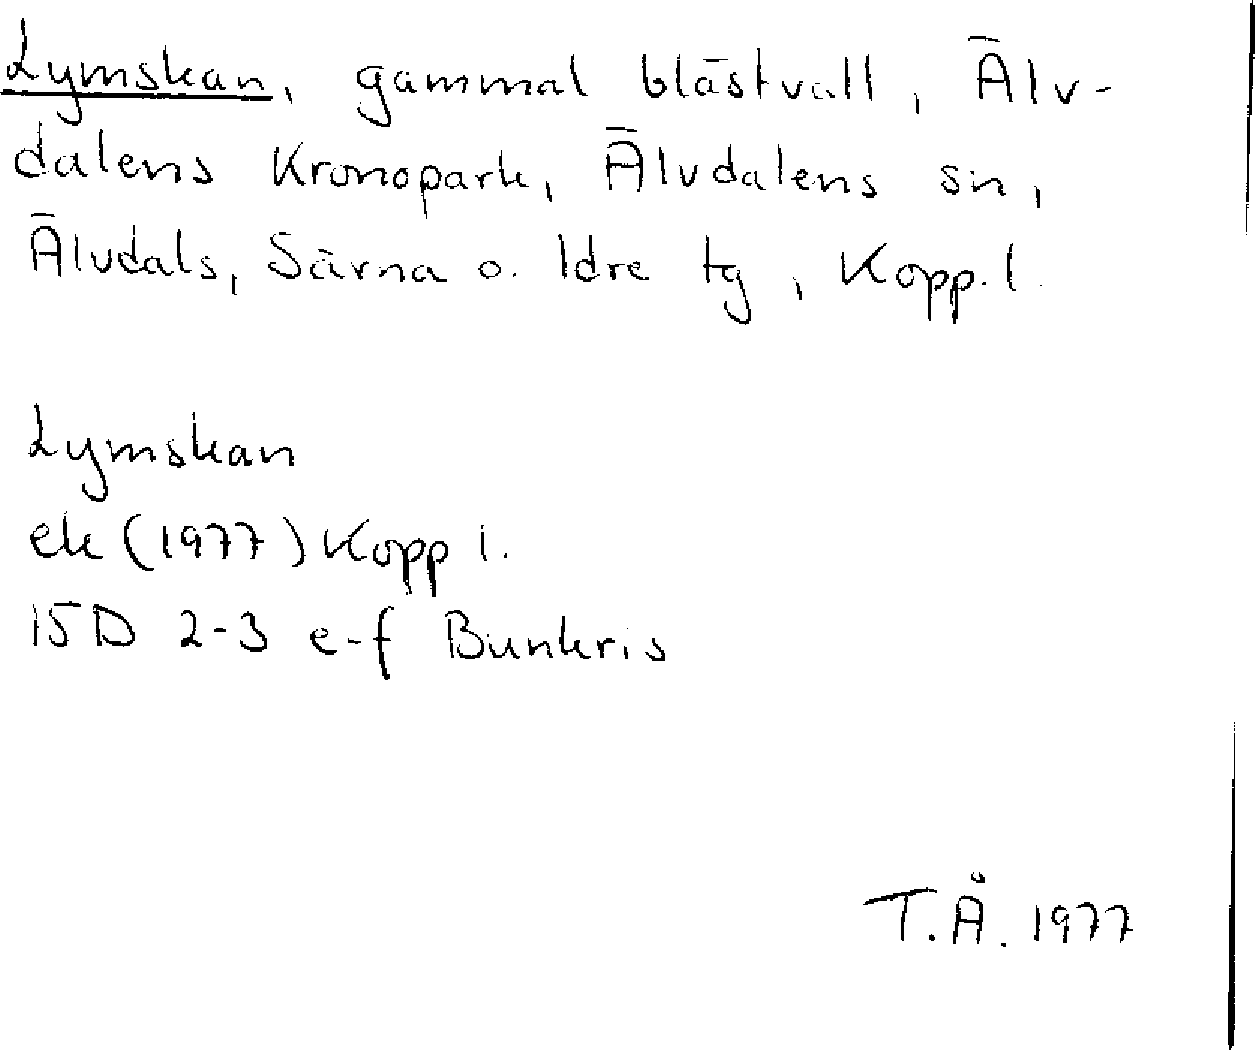 Lymskan, gammal blästvall, Älv-
dalens Kronopark, Älvdalens sn,
Älvdals, Särna o. Idre tg, Kopp. l.
Lymskan
ek (1977) Kopp l.
15D 2-3 e-f Bunkris
T.Å. 1977